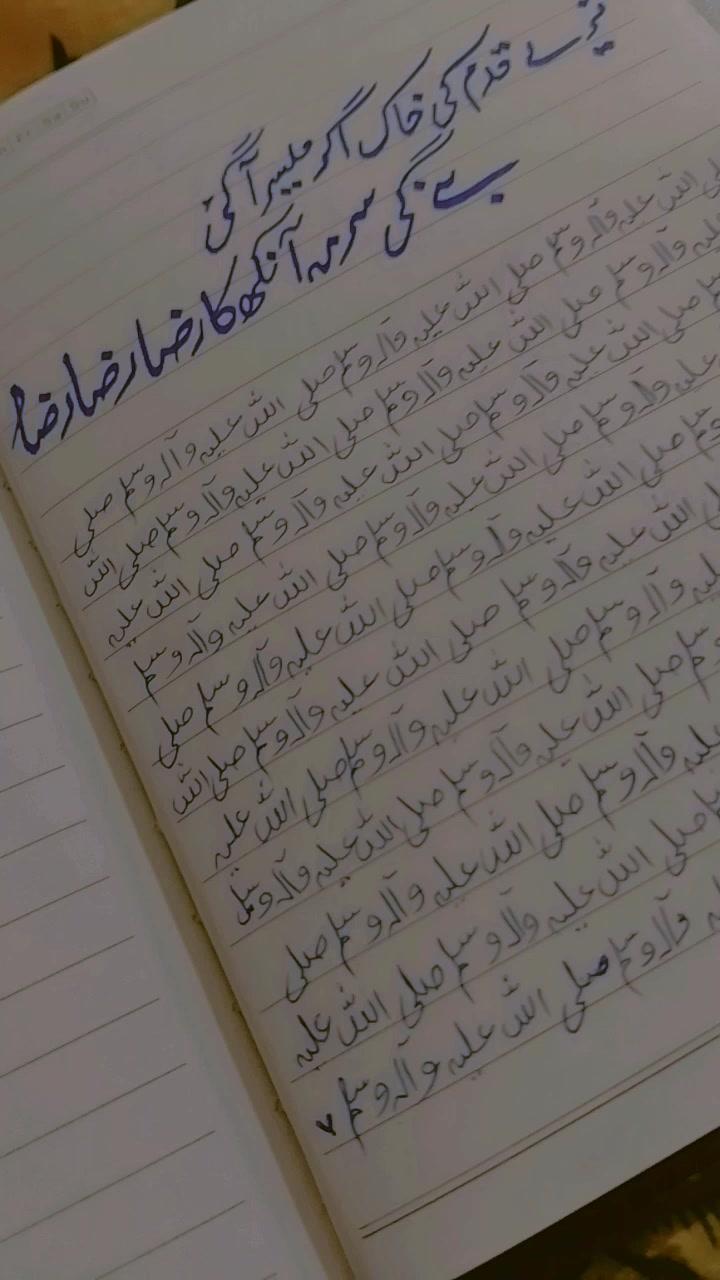 تیرے قدم کی خاک اگر میسر آ گئی
بنے گی سرمہ آنکھ کا رضا رضا رضا
صلی اللہ علیہ وآلہ وسلم صلی اللہ علیہ وآلہ وسلم صلی
علیہ وآلہ وسلم صلی اللہ علیہ وآلہ وسلم صلی اللہ علیہ وآلہ وسلم صلی اللہ
صلی اللہ علیہ وآلہ وسلم صلی اللہ علیہ وآلہ وسلم صلی اللہ علیہ
علیہ وآلہ وسلم صلی اللہ علیہ وآلہ وسلم صلی اللہ علیہ وآلہ وسلم
صلی اللہ علیہ وآلہ وسلم صلی اللہ علیہ وآلہ وسلم صلی
اللہ علیہ وآلہ وسلم صلی اللہ علیہ وآلہ وسلم صلی اللہ
وآلہ وسلم صلی اللہ علیہ وآلہ وسلم صلی اللہ علیہ
صلی اللہ علیہ وآلہ وسلم صلی اللہ علیہ وآلہ وسلم
علیہ وآلہ وسلم صلی اللہ علیہ وآلہ وسلم صلی
صلی اللہ علیہ وآلہ وسلم صلی اللہ علیہ
وآلہ وسلم صلی اللہ علیہ وآلہ وسلم